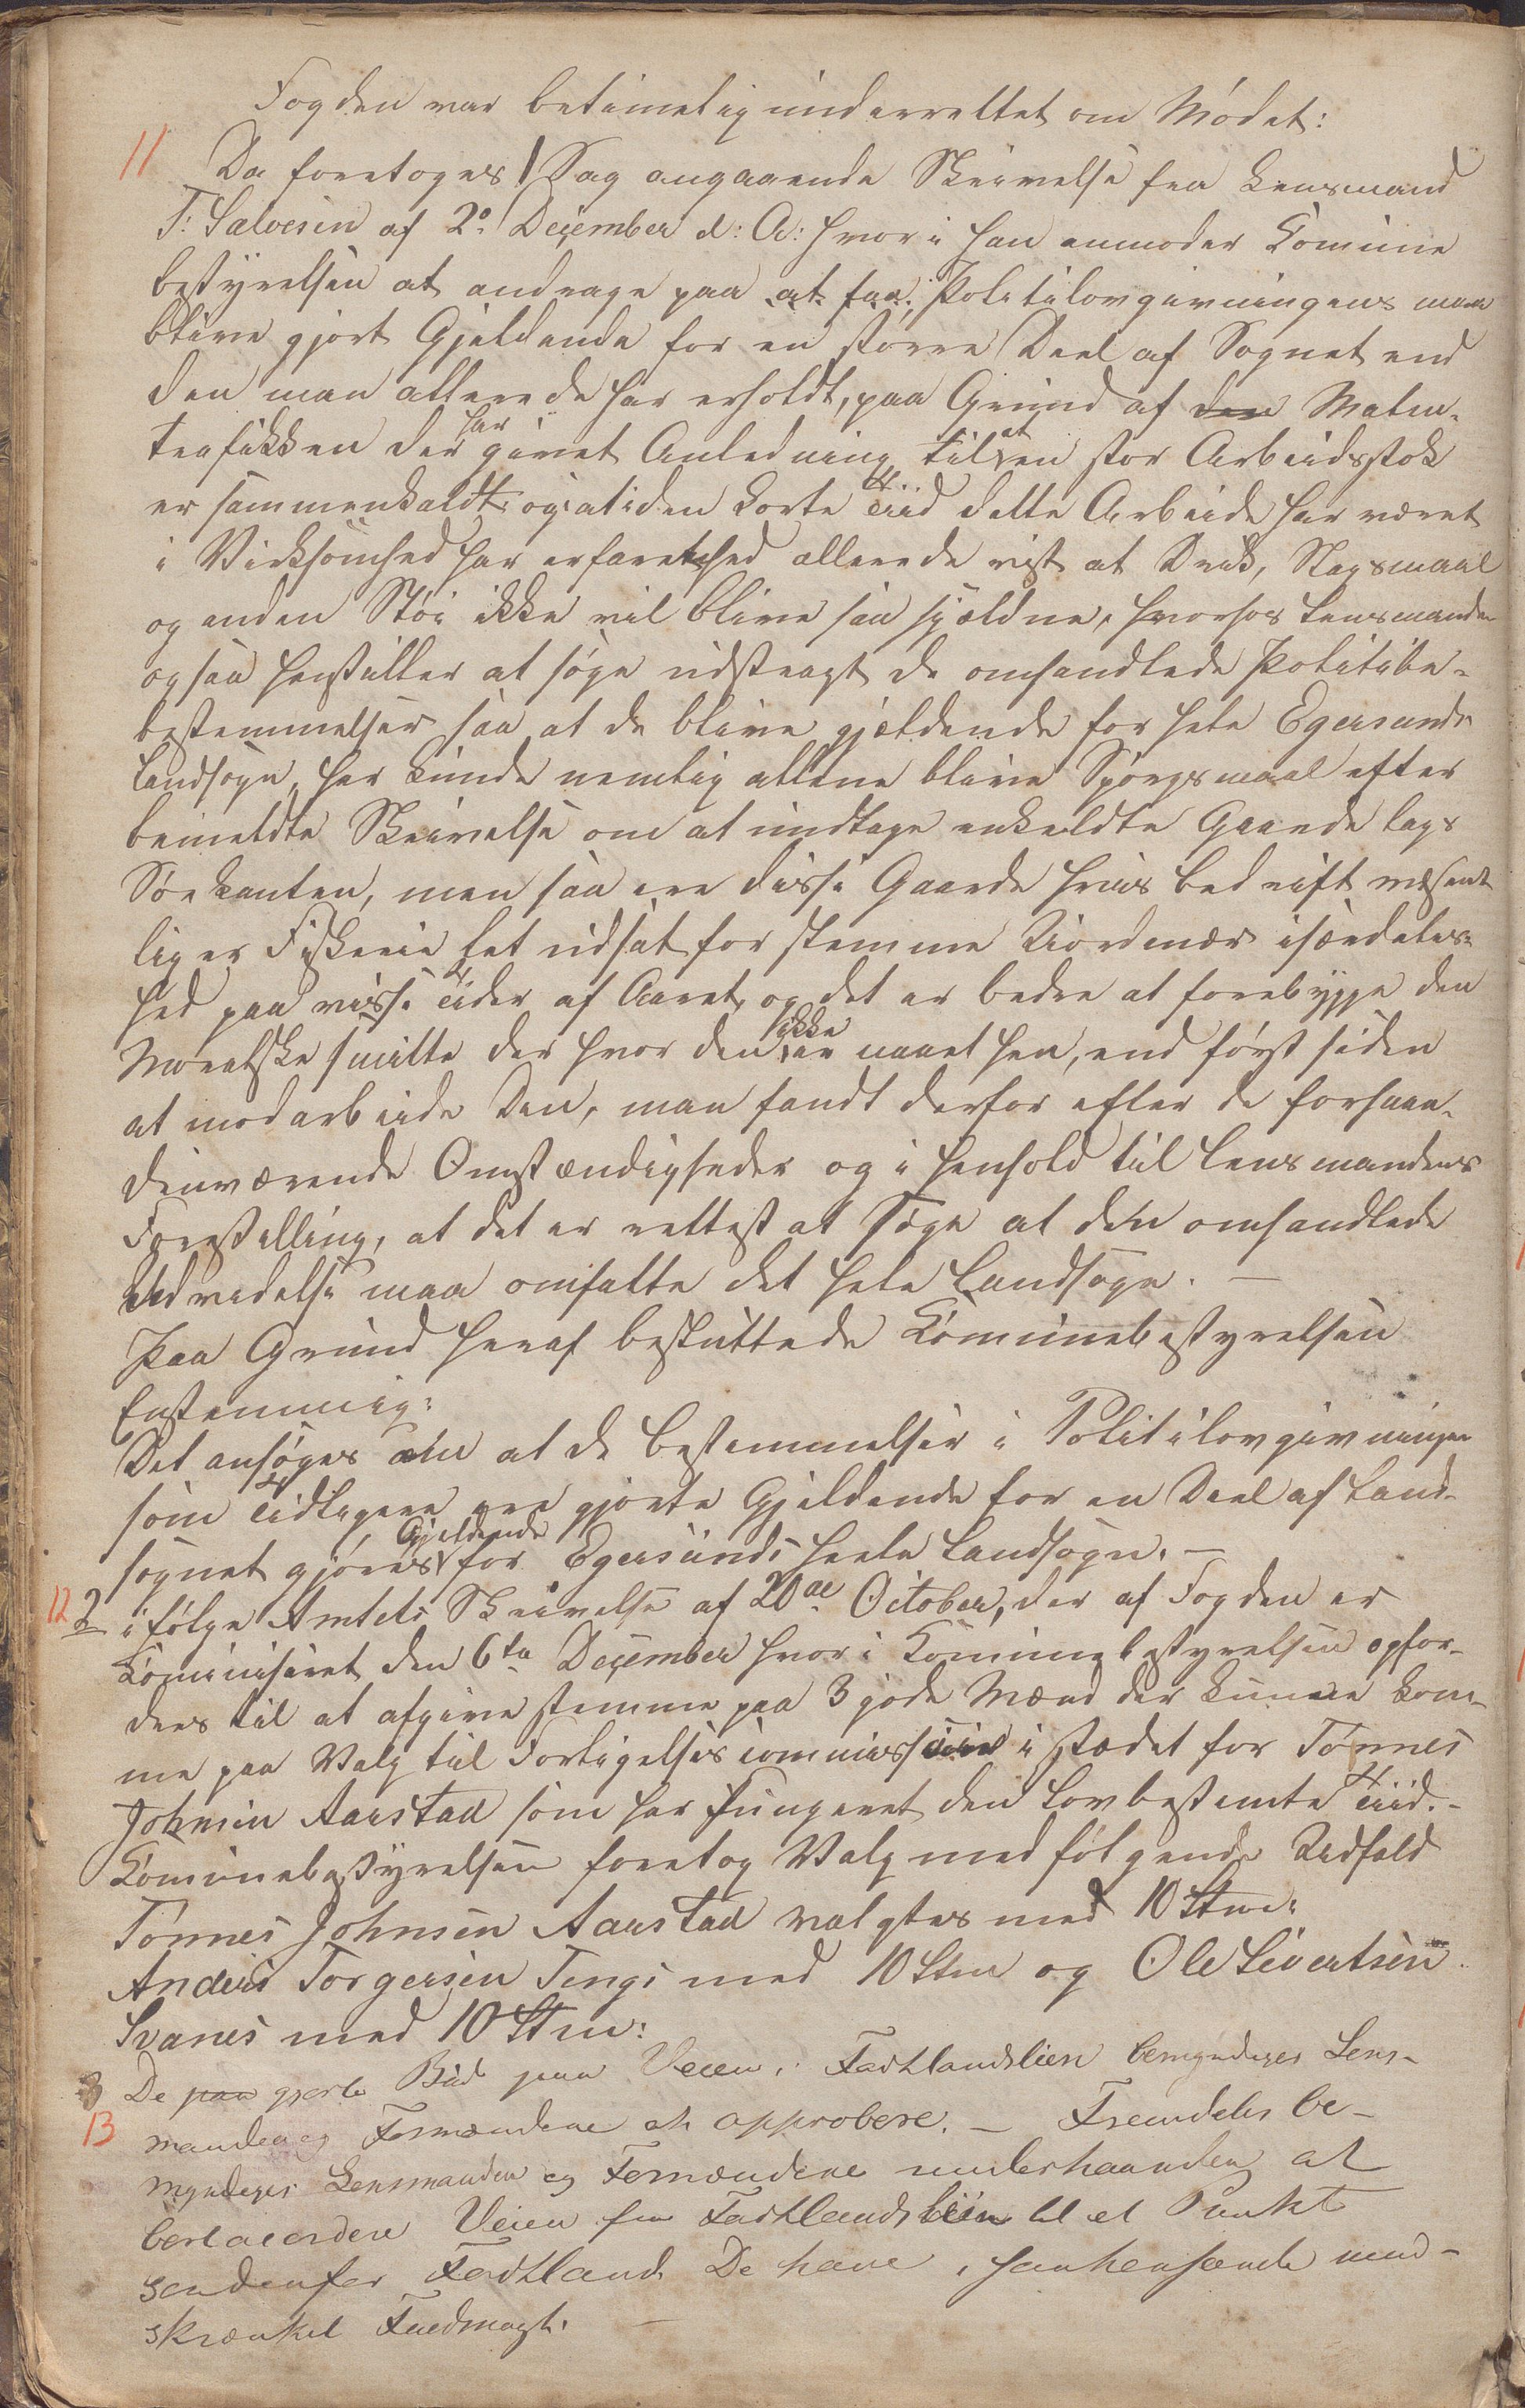 Fogden var betimelig underrettet om Mödet:
11 Da foretoges 1 Sag angaaende Skrivelse fra Lensmand
T: Salvesen af 2º December d: A: hvor i han anmoder Comune
bestyrelsen at andrage paa at faa: Politilovgivningens maa
blive gjort Gjeldende for en större Deel af Sognet end
den man allerede har erholdt, paa Grund af den Malm-
trafikken der har givet Anledning til at en stor Arbeidsstok
er sammenkaldt og at i den korte Tiid dette Arbeide har været
i Virksomhed har erfarethed allerede vist at Druk, Slagsmaal
og anden Stöi ikke vil blive saa sjældne, hvorfor Lensmanden
ogsaa henstiller at söge udstragt de omhandlede Politibe-
bestemmelser saa at de blive gjældende for hele Egersunds
Landsogn, her kunde nemlig allene blive Spörgsmaal efter
bemeldte Skrivelse om at indtage enkeldte Gaarde lags
Söekanten, men saa ere disse Gaarde hvis bedrift væsent
lig er Fiskerie let udsat for slemme Uordener isærdeles-
hed paa visse Tider af Aaret, og det er bedre at forebygge den
Moralske smitte der hvor den ikke er naaet hen, end först siden
at modarbeide Den, man fandt derfor efter de forhaan-
denværende Omstændigheder og i Henhold til Lensmandens
Forestilling, at det er rettest at Söge at den omhandlede
Udvidelse maa omfatte det hele Landsogn. —
Paa Grund heraf besluttede Comunebestyrelsen
Enstemmig:
Det ansöges om at de bestemmelser i Politilovgivningen
som Tidligere ere gjorte Gjeldende for en Deel af Land-
sognet gjöres Gjeldende for Egersunds heele Landsogn. —
12 2 ifölge Amtets Skrivelse af 20de October, der af Fogden er
Comuniseret den 6te December hvor i Comunebestyrelsen opfor-
dres til at afgive stemme paa 3 gode Mænd der kunne kom-
me paa Valg til Forligelsescommission i stædet for Tönnes
Johnsen Aarstad som har fungeret den Lovbestemte Tiid. -
Comunebestyrelsen foretog Valg med fölgende Udfald
Tönnes Johnsen Aarstad valgtes med 10 Stm:
Anders Torgersen Tengs med 10 Stm og Ole Sivertsen
Svanes med 10 Stm:
3 De paa gjorte Bud paa Veien i Fadtlandslien bemyndiges Lens-
13 manden og Formændene at approbere. — Fremdeles be-
myndiges Lensmanden og Formændene underhaanden at
bortacordere Veien fra Fadtlandsliin til et Punkt
söndenfor Fadtland De have i saahenseende uind-
skrænket Fuldmagt. —